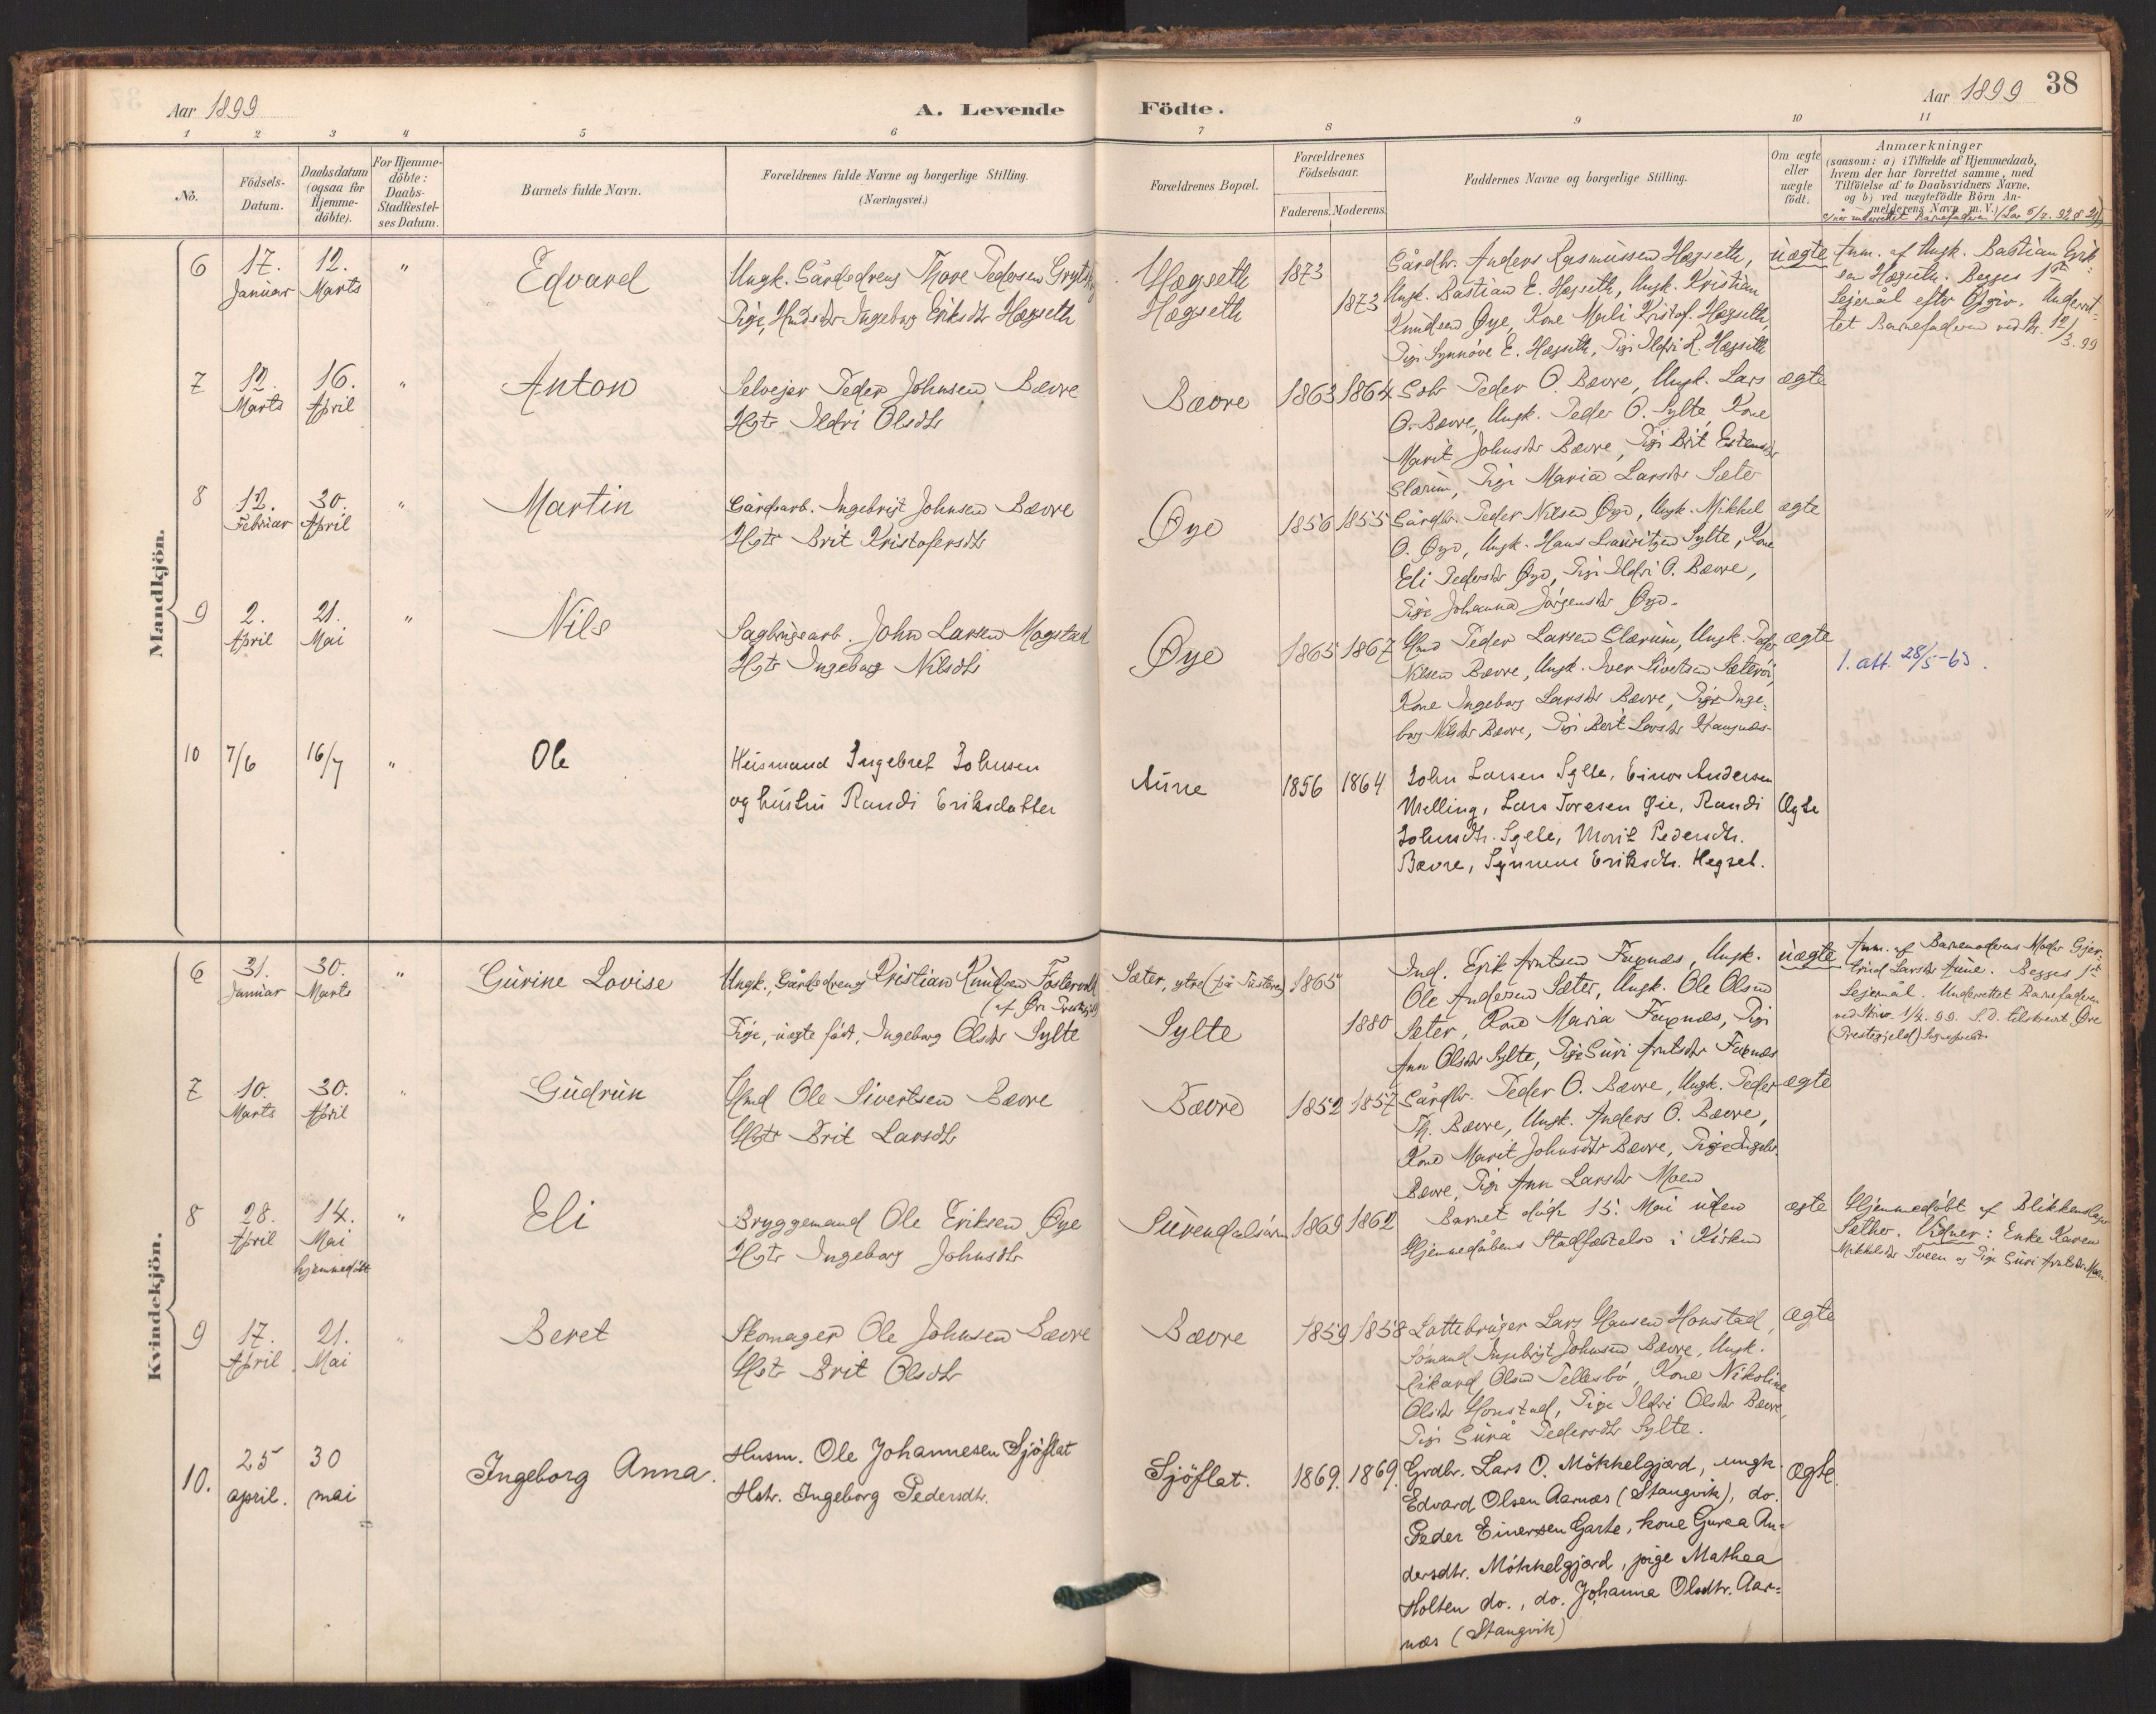 Aar 1899
A. Levende Födte.
Aar 1899 38
1 2 3 4 5 6 7 8 9 10 11
No.
Födsels-
Datum.
Daabsdatum
(ogsaa for
Hjemme-
döbte).
For Hjemme-
döbte:
Daabs-
Stadfæstel-
ses Datum.
Barnets fulde Navn.
Forældrenes fulde Navne og borgerlige Stilling.
(Næringsvei.)
Forældrenes Bopæl.
Forældrenes
Födselsaar.
Faderens. Moderens.
Faddernes Navne og borgerlige Stilling.
Om ægte
eller
uægte
födt.
Anmærkninger
(saasom: a) i Tilfælde af Hjemmedaab,
hvem der har forrettet samme, med
Tilföielse af to Daabsvidners Navne,
og b) ved uægtefödte Börn An-
melderens Navn m. V.)
Mandkjön.
6
17.
Januar
12.
Marts
"
Edvard
Ungk. Gårdsdreng Thore Pedersen
Pige, Ingeborg Eriksdtr Hægseth
Hægseth
Hægseth
1873
1873
Gårdbr. Anders Rasmussen Hægseth,
Ungk. Bastian E. Hægseth, Ungk. Kristian
Knudsen Øye, Kone Marli Kristof. Hægseth,
Pige Synnöve E. Hægseth, Pige Ildri R. Hægseth
uægte
Anm. af Ungk. Bastian Erik-
sen Hægseth. Begges 1ste
Lejermål efter Opgiv. Underret-
tet Barnefaderen ved Br. 12/3.99
7
12.
Marts
16.
April
"
Anton
Selvejer Peder Johnsen Bævre
Hstr Ildri Olsdtr
Bævre
1863 1864
Peder O. Bævre, Ungk. Lars
O. Bævre, Ungk. Peder O. Sylte, Kone
Marit Johnsdtr Bævre, Pige Brit Estensdtr
Glærum, Pige Maria Larsdtr Sæter
ægte
8
12.
Februar
30.
April
"
Martin
Gårdsarb. Ingebrigt Johnsen Bævre
Hstr Brit Kristofersdtr
Øye
1856 1855
Gårdbr. Peder Nilsen Øye, Ungk. Mikkel
O. Øye, Ungk. Hans Lauritzen Sylte, Kone
Eli Pedersdtr Øye, Pige Ildri O. Bævre,
Pige Johanna Jörgensdtr Øye.
ægte
9
2.
April
21.
Mai
"
Nils
Sagbrugsarb. John Larsen Mogstad
Hstr Ingeborg Nilsdtr
Øye
1865 1867
Hmd Peder Larsen Glærum, Ungk. Peder
Nilsen Bævre, Ungk. Iver Sivertsen Sæteröi,
Kone Ingeborg Larsdtr Bævre, Pige Inge-
borg Nilsdtr Bævre, Pige Berit Larsdtr Kvangnæs-
ægte
1. att. 28/5-63.
10
7/6
16/7
"
Ole
Husmand Ingebret Johnsen
og hustru Randi Eriksdatter
Aune
1856 1864
John Larsen Sylte, Einar Andersen
Melling, Lars Toresen Øie, Randi
Johnsdtr. Sylte, Marit Pedersdtr.
Bævre, Synnøve Eriksdtr. Hegset.
Ægte
Kvindekjön.
6
31.
Januar
30.
Marts
"
Gurine Lovise
Ungk., Gårdsdreng Kristian Knudsen Fostervold
(af Öre Prestegj.)
Pige, uægte födt, Ingeborg Olsdtr Sylte
Sæter, ytre (på Tustern)
Sylte
1865
1880
Ind. Erik Arntsen Faxnæs, Ungk.
Ole Andersen Sæter, Ungk. Ole Olsen
Sæter, Kone Maria Faxnæs, Pige
Ann Olsdtr Sylte, Pige Guri Arntsdtr Faxnæs
uægte
Anm. af Barnemoderens Moder Gjer-
trud Larsdtr Aune. Begges 1ste
Lejermål. Underrettet Barnefaderen
ved Skriv. 1/4. 99. S.D. tilskrevet Öre
(Prestegjeld) Sogneprest.
7
10.
Marts
30.
April
"
Gudrun
Hmd Ole Sivertsen Bævre
Hstr Brit Larsdtr
Bævre
1852 1857
Gårdbr. Peder O. Bævre, Ungk. Peder
Th. Bævre, Ungk. Anders O. Bævre,
Kone Marit Johnsdtr Bævre, Pige Ingebr.
Bævre, Pige Ann Larsdtr Moen
ægte
8
28.
April
14.
Mai
hjemmedöbt
"
Eli
Bryggemand Ole Eriksen Øye
Hstr Ingeborg Johnsdtr
Surendalsören
1869 1862
Barnet döde 15. Mai uden
Hjemmedåbens Stadfæstelse i Kirken
ægte
Hjemmedöbt af Blikkenslager
Sæther. Vidner: Enke Karen
Mikkelsdtr Sveen og Pige Guri Arntsdtr Moen
9
17.
April
21.
Mai
"
Beret
Skomager Ole Johnsen Bævre
Hstr Brit Olsdtr
Bævre
1859 1858
Lottebruger Lars Hansen Honstad,
Sömand Ingebrigt Johnsen Bævre, Ungk.
Rikard Olsen Tellesbö, Kone Nikoline
Olsdtr Honstad, Pige Ildri Olsdtr Bævre,
Pige Gurå Pedersdtr Sylte.
ægte
10.
25
april.
30
mai
Ingeborg Anna.
Husm. Ole Johannesen Sjöflat
Hstr. Ingeborg Pedersdtr.
Sjöflat.
1869. 1869.
Grdbr. Lars O. Mökkelgjærd, ungk.
Edvard Olsen Aarnæs (Stangvik), do.
Peder Einersen Garte, kone Guraa An-
dersdtr. Mökkelgjærd, pige Mathea
Holten do., do. Johanna Olsdtr. Aar-
næs (Stangvik)
ægte.